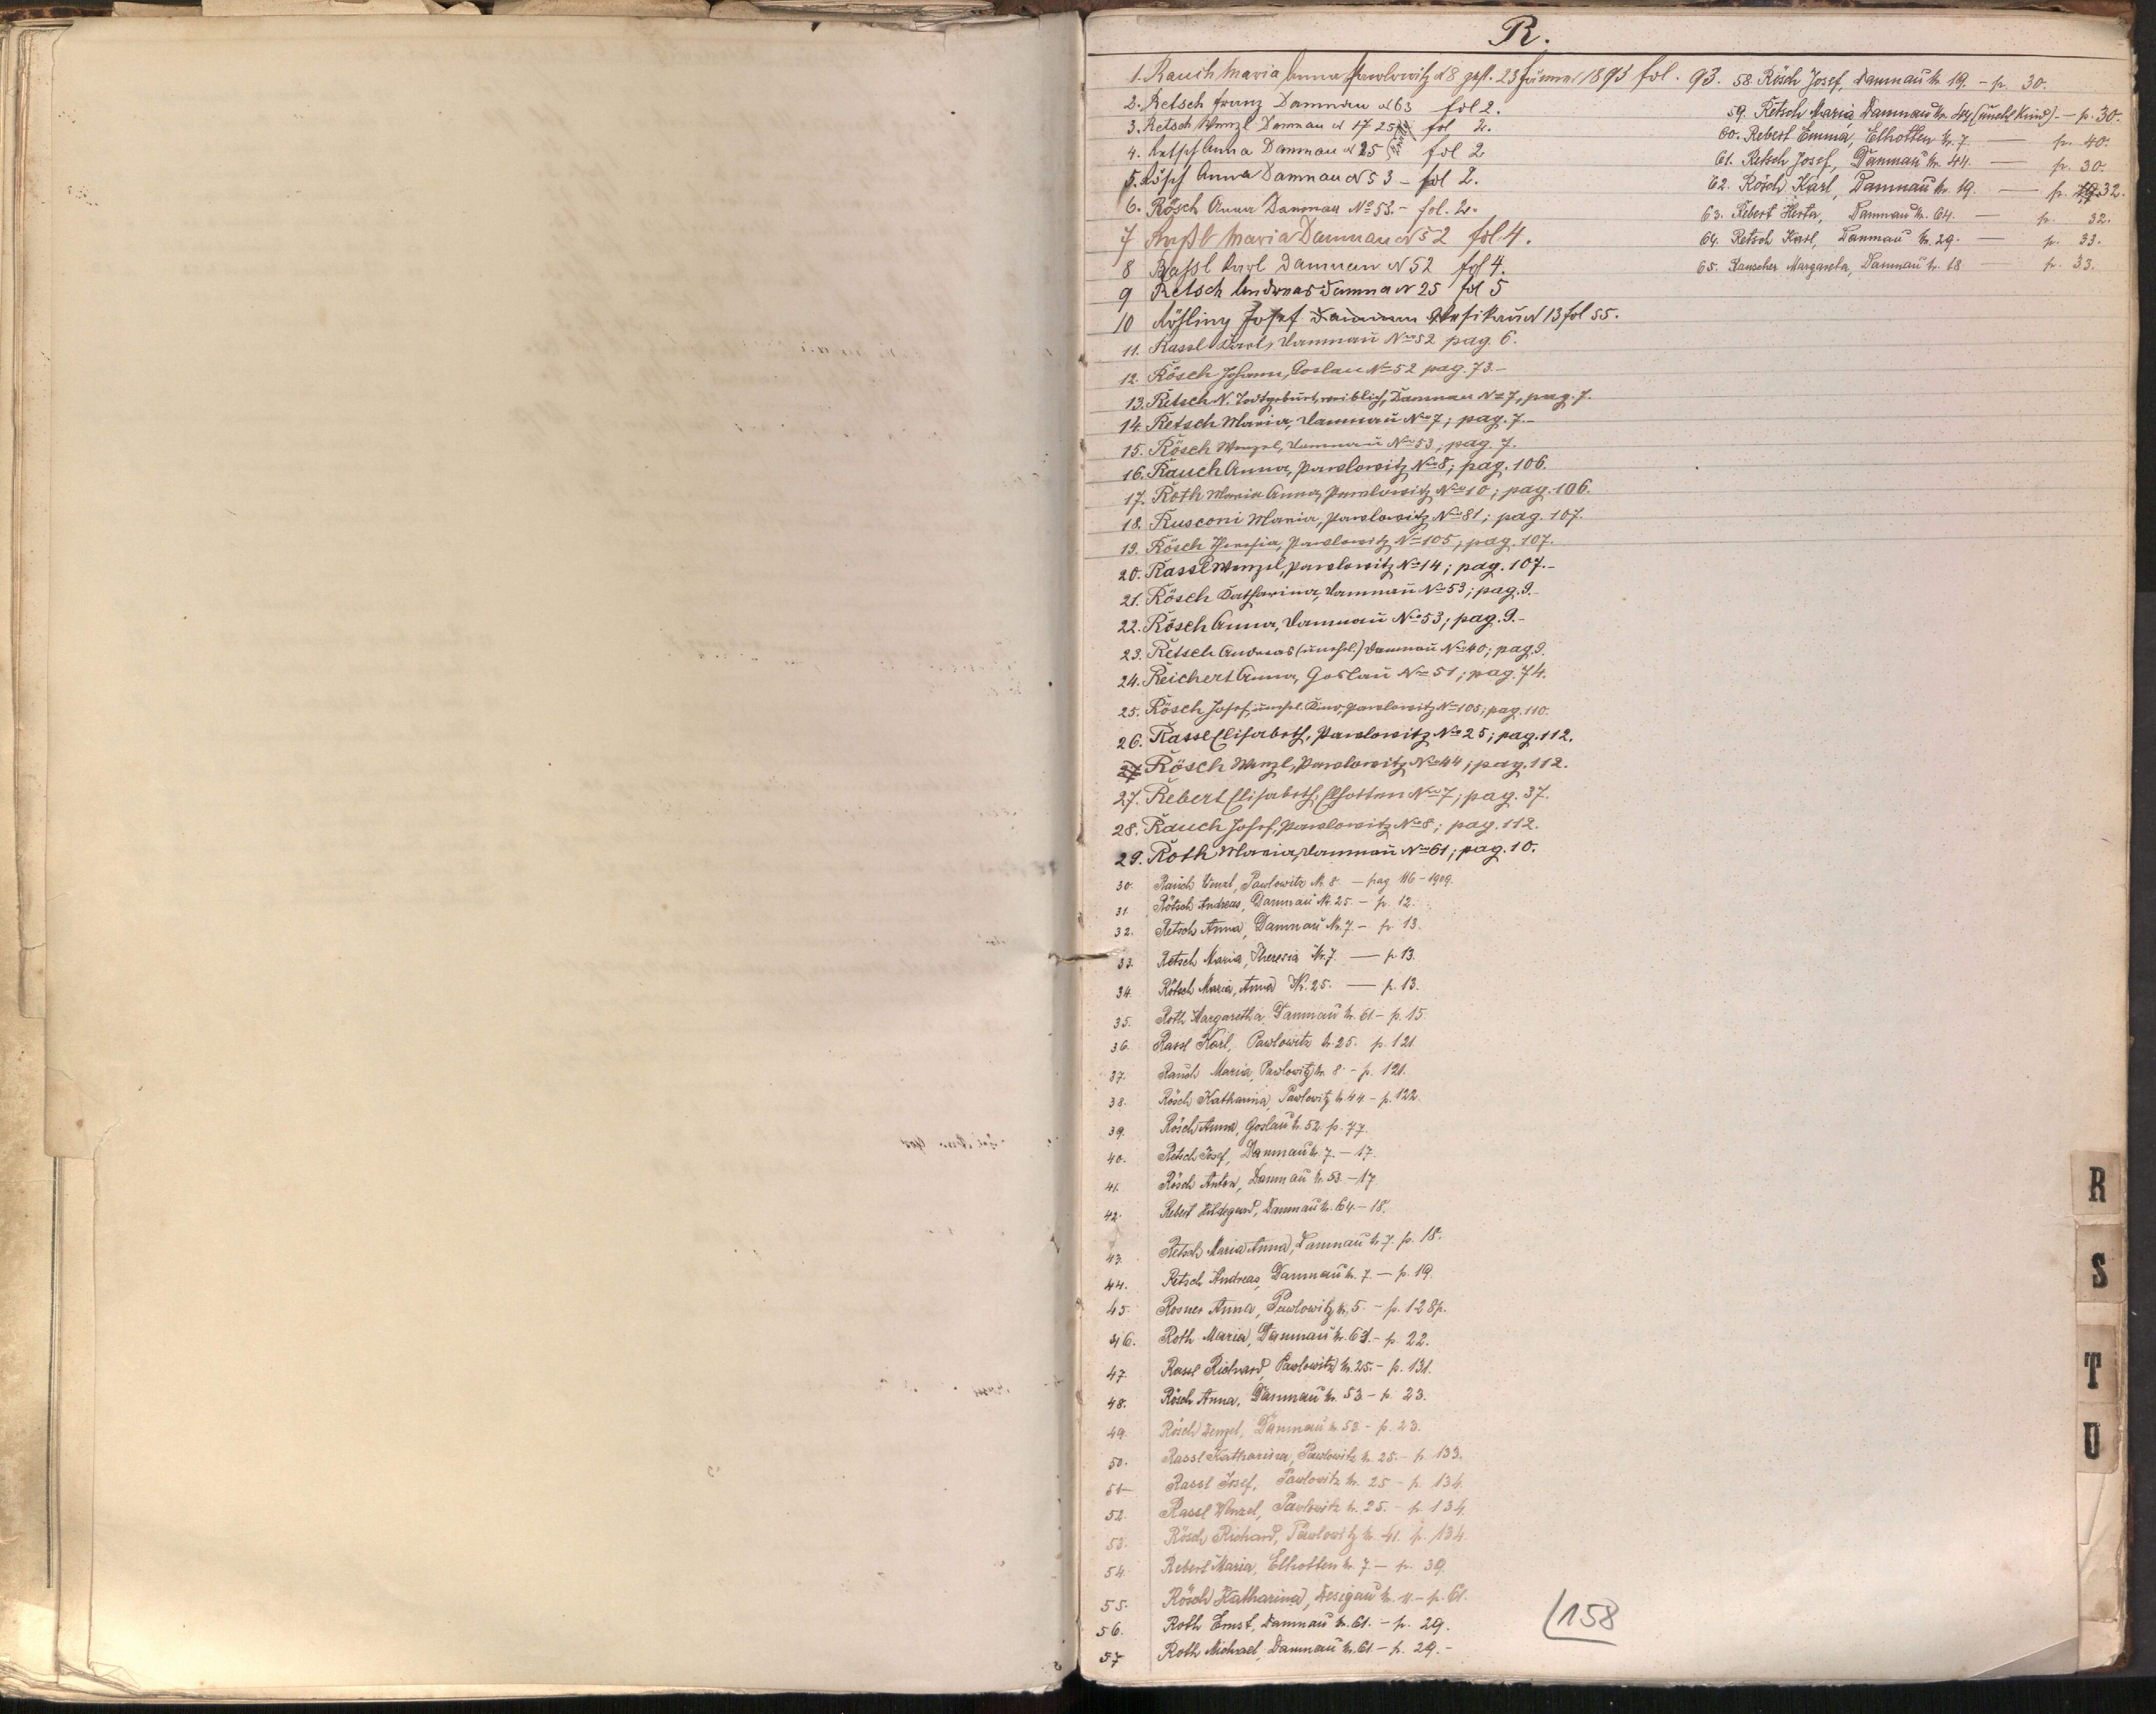 R.
1. Rauch Maria Anna Pawlowitz N 8 gest. 23 Jänner 1893 fol. 93.
2. Retsch Franz Damnau N 63 fol 2.
3. Retsch Wenzl Damnau N 17 25 fol 2.
4. Retsch Anna Damnau N 25 fol 2
5. Rösch Anna Damnau N 53 – fol 2.
6. Rösch Anna Damnau No 53. – fol. 2.
7 Raßl Maria Damnau N 52 fol 4.
8 Raßl Karl Damnau N 52 fol 4.
9 Retsch Andreas Damna N 25 fol 5
10 Rößling Josef Damnau Wesikau N 13 fol 55.
11. Rassl Karl, Damnaŭ No 52 pag. 6.
12. Rösch Johann, Goslau No 52 pag. 73.–
13. Retsch N. Todtgeburt, weiblich, Damnau No 7, pag. 7.
14. Retsch Maria, Damnaŭ No 7; pag. 7.–
15. Rösch Wenzel, Damnaŭ No 53; pag. 7.
16. Rauch Anna, Pawlowitz No 8; pag. 106.
17. Roth Maria Anna, Pawlowitz No 10; pag. 106.
18. Rusconi Maria, Pawlowitz No 81; pag. 107.
19. Rösch Theresia, Pawlowitz No 105; pag. 107.
20. Rassl Wenzel, Pawlowitz No 14; pag. 107.–
21. Rösch Katharina, Damnaŭ No 53; pag. 9.–
22. Rösch Anna, Damnaŭ No 53; pag. 9.–
23. Retsch Andreas (ŭnehl.) Damnaŭ No 40; pag. 9.
24. Reichert Anna, Goslaŭ No 51; pag. 74.
25. Rösch Josef, ŭnehl. Kind, Pawlowitz No 105; pag. 110.
26. Rassl Elisabeth, Pawlowitz No 25; pag. 112.
27 Rösch Wenzl, Pawlowitz No 44; pag. 112.
27. Rebert Elisabeth, Elhotten No 7; pag. 37.
28. Rauch Josef, Pawlowitz No 8; pag. 112.
29. Roth Maria, Damnaŭ No 61; pag. 10.
30. Raŭch Wenzl, Pawlowitz N. 8 – pag 116 – 1909.
31. Rötsch Andreas, Damnaŭ Nr. 25 – p. 12.
32. Retsch Anna, Damnaŭ Nr. 7. – p. 13.
33. Retsch Maria, Theresia Nr. 7. — p. 13.
34. Rötsch Maria, Anna Nr. 25. — p. 13.
35. Roth Margaretha, Damnaŭ N. 61 – p. 15.
36. Rassl Karl, Pawlowitz N. 25. p. 121
37. Rauch Maria, Pawlowitz N. 8. – p. 121.
38. Rösch Katharina, Pawlowitz N. 44 – p. 122.
39. Rösch Anna, Goslaŭ N. 52. p. 77.
40. Retsch Josef, Damnaŭ N. 7. – 17.
41. Rösch Anton, Damnaŭ N. 53 – 17
42. Rebert Hildegard, Damnaŭ N. 64. – 18.
43. Retsch Maria Anna, Damnaŭ N. 7. p. 18.
44. Retsch Andreas, Damnaŭ N. 7. – p. 19.
45. Rosner Anna, Pawlowitz N. 5. – p. 128p.
46. Roth Maria, Damnaŭ N. 61. – p. 22.
47. Rassl Richard, Pawlowitz N. 25. – p. 131.
48. Rösch Anna, Damnaŭ N. 53 – p. 23.
49. Rösch Wenzel, Damnaŭ N. 53 – p. 23.
50. Rassl Katharina, Pawlowitz N. 25. – p. 133.
51 – Rassl Josef, Pawlowitz N. 25 – p. 134.
52. Rassl Wenzel, Pawlowitz N. 25. – p. 134.
53. Rösch Richard, Pawlowitz N. 41. p. 134.
54. Rebert Maria, Elhotten N. 7 – p. 39.
55. Rösch Katharina, Wesigaŭ N. – p. 61.
56. Roth Ernst, Damnaŭ N. 61. – p. 29.
57 Roth Michael, Damnaŭ N. 61 – p. 29. –
58. Rösch Josef, Damnaŭ N. 19. – p. 30.
59. Retsch Maria Damnaŭ N. 44 (ŭnehl. Kind) – p. 30.
60. Rebert Emma, Elhotten N. 7. — p. 40.
61. Retsch Josef, Damnaŭ N. 44. — p. 30.
62. Rösch Karl, Damnaŭ N. 19. — p. 32.
63. Rebert Herta, Damnaŭ N. 64. — p. 32.
64. Retsch Karl, Damnaŭ N. 29. — p. 33.
65. Rauscher Margareta, Damnaŭ N. 18 — p. 33.
158
R
S
T
U